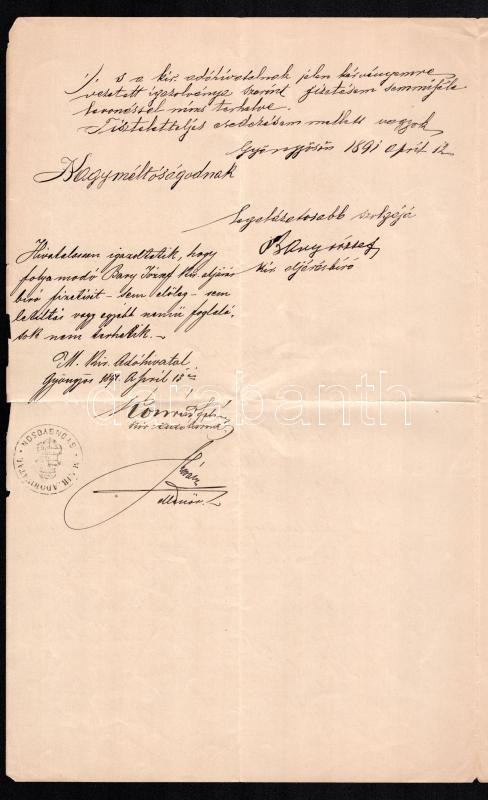 s a kir. adóhivatalnak jelen kérvényemre
vezetett igazolványa szerint fizetésem semmiféle
levonással nincs terhelve.
Tiszteletteljes esedezésem mellett vagyok
Gyöngyösön 1891 April 12
Nagyméltóságodnak
legalázatosabb szolgája
Bary József
kir. aljárásbíró
Hivatalosan igazoltatik, hogy
folyamodó Bary József kir. aljárás
bíró fizetését - sem előleg - sem
letiltás vagy egyéb nemű foglalá,
sok nem terhelik.
M. Kir. Adóhivatal
Gyöngyös 1891 April 13
Konrád
ellenőr
M. KIR. ADÓHIVATAL GYÖNGYÖSÖN
darabanth